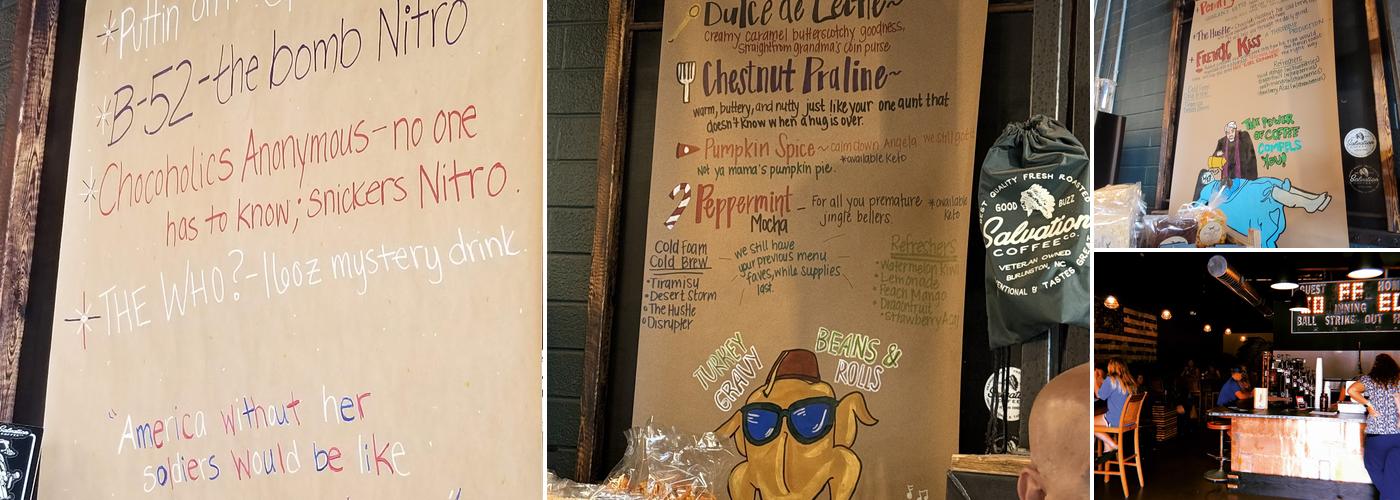 Puttin on
B-52-the bomb Nitro
Chocoholics Anonymous-no one
has to know; snickers Nitro.
THE WHO?-16oz mystery drink.
"America without her
soldiers would be like
Dulce de Leche~
Creamy caramel butterscotchy goodness,
straight from grandma's coin purse
Chestnut Praline~
warm, buttery, and nutty just like your one aunt that
doesn't know when a hug is over.
Pumpkin Spice~calm down Angela we still got
*available Keto
Not ya mama's pumpkin pie.
Peppermint
Mocha
- For all you premature
jingle bellers.
*available
Keto
Cold Foam
Cold Brew
•Tiramisu
•Desert Storm
•The Hustle
•Disrupter
we still have
your previous menu
faves, while supplies
last.
Refreshers
•Watermelon Kiwi
•Lemonade
•Peach Mango
•Dragonfruit
•Strawberry Acai
TURKEY
GRAVY
BEANS &
ROLLS
QUALITY FRESH ROASTED
GOOD BUZZ
Salvation
COFFEE CO.
VETERAN OWNED
BURLINGTON, NC
•The Hustle-
+ FRENCH KISS
Refreshers
THE POWER
OF COFFEE
COMPELS
YOU!
Salvation
Salvation
GUEST
INNING
BALL STRIKE OUT